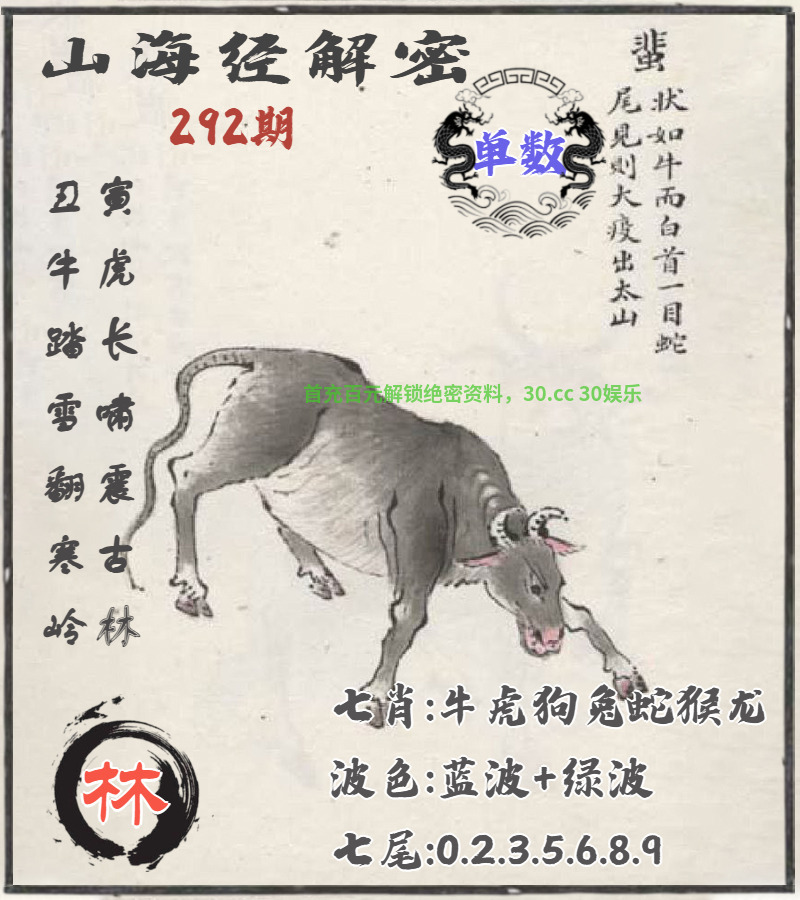 山海经解密
292期
单数
蜚
状如牛而白首一目蛇
尾见则大疫出太山
寅虎长啸震古林
丑牛踏雪翻寒岭
首充百元解锁绝密资料，30.cc 30娱乐
林
七肖:牛虎狗兔蛇猴龙
波色:蓝波+绿波
七尾:0.2.3.5.6.8.9